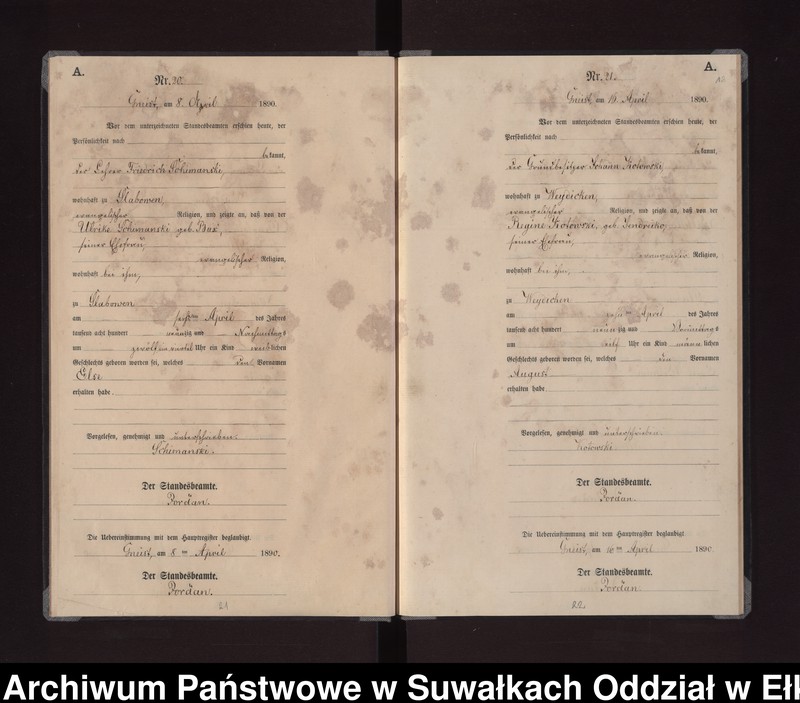 A.
Nr. 20.
Gneist, am 8. April 1890.
Vor dem unterzeichneten Standesbeamten erschien heute, der
Persönlichkeit nach
bekannt,
der Lehrer Friedrich Schimanski,
wohnhaft zu Slabowen,
evangelischer Religion, und zeigte an, daß von der
Ulrike Schimanski geb.
seiner Ehefrau,
evangelischer Religion,
wohnhaft bei ihm,
zu Slabowen
am April des Jahres
tausend acht hundert neunzig und Nachmittags
um Uhr ein Kind weiblichen
Geschlechts geboren worden sei, welches den Vornamen
Else
erhalten habe.
Vorgelesen, genehmigt und unterschrieben.
Schimanski.
Der Standesbeamte.
Jordan.
Die Uebereinstimmung mit dem Hauptregister beglaubigt
Gneist, am 8ten April 1890.
Der Standesbeamte.
Jordan.
21
A.
Nr. 21.
Gneist am April 1890.
Vor dem unterzeichneten Standesbeamten erschien heute, der
Persönlichkeit nach
bekannt,
der Grundbesitzer Johann Kolowski
wohnhaft zu Weydichen,
evangelischer Religion, und zeigte an, daß von der
Regine Kolowski, geb.
seiner Ehefrau,
evangelischer Religion,
wohnhaft bei ihm,
zu Weydichen
am April des Jahres
tausend acht hundert neunzig und Vormittags
um Uhr ein Kind männlichen
Geschlechts geboren worden sei, welches den Vornamen
August
erhalten habe
Vorgelesen, genehmigt und unterschrieben.
Kolowski
Der Standesbeamte.
Jordan.
Die Uebereinstimmung mit dem Hauptregister beglaubigt
Gneist, am April 1890
Der Standesbeamte.
Jordan
22
Archiwum Państwowe w Suwałkach Oddział w Ełk